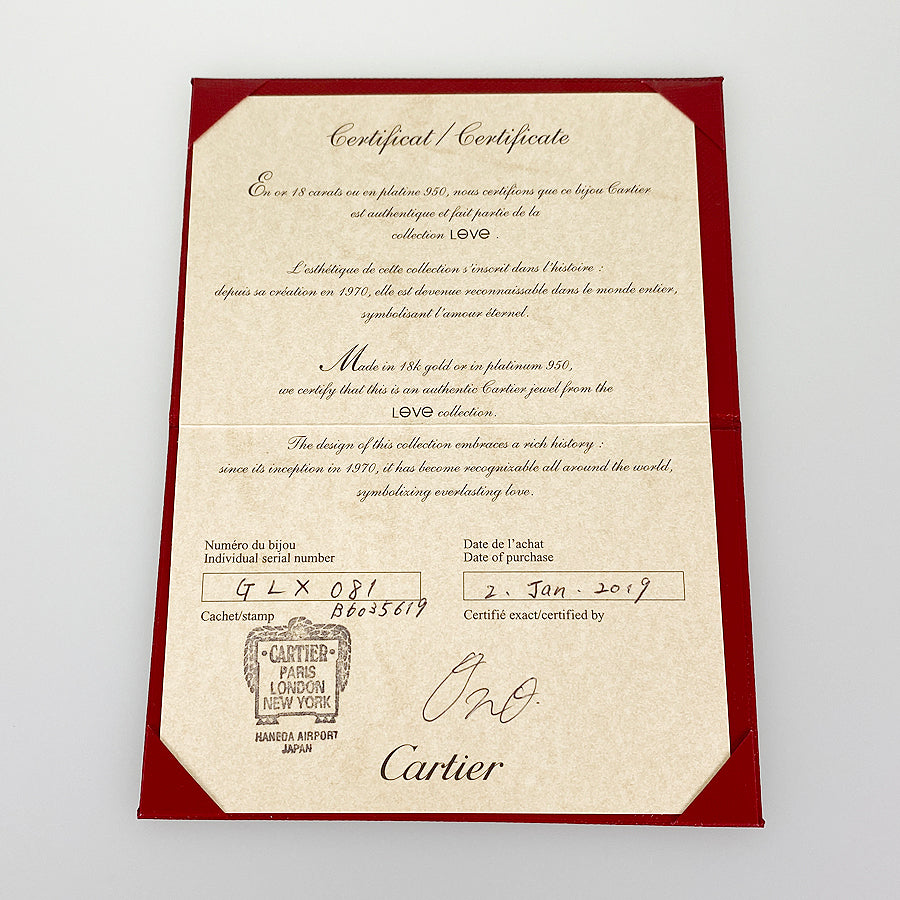 Certificat / Certificate
En or 18 carats ou en platine 950, nous certifions que ce bijou Cartier
est authentique et fait partie de la
collection LOVE .
L'esthétique de cette collection s'inscrit dans l'histoire :
depuis sa création en 1970, elle est devenue reconnaissable dans le monde entier,
symbolisant l'amour éternel.
Made in 18k gold or in platinum 950,
we certify that this is an authentic Cartier jewel from the
LOVE collection.
The design of this collection embraces a rich history :
since its inception in 1970, it has become recognizable all around the world,
symbolizing everlasting love.
Numéro du bijou
Individual serial number
GLX 081
B6035619
Cachet/stamp
CARTIER
PARIS
LONDON
NEW YORK
HANEDA AIRPORT
JAPAN
Date de l'achat
Date of purchase
2. Jan. 2019
Certifié exact/certified by
Ono.
Cartier